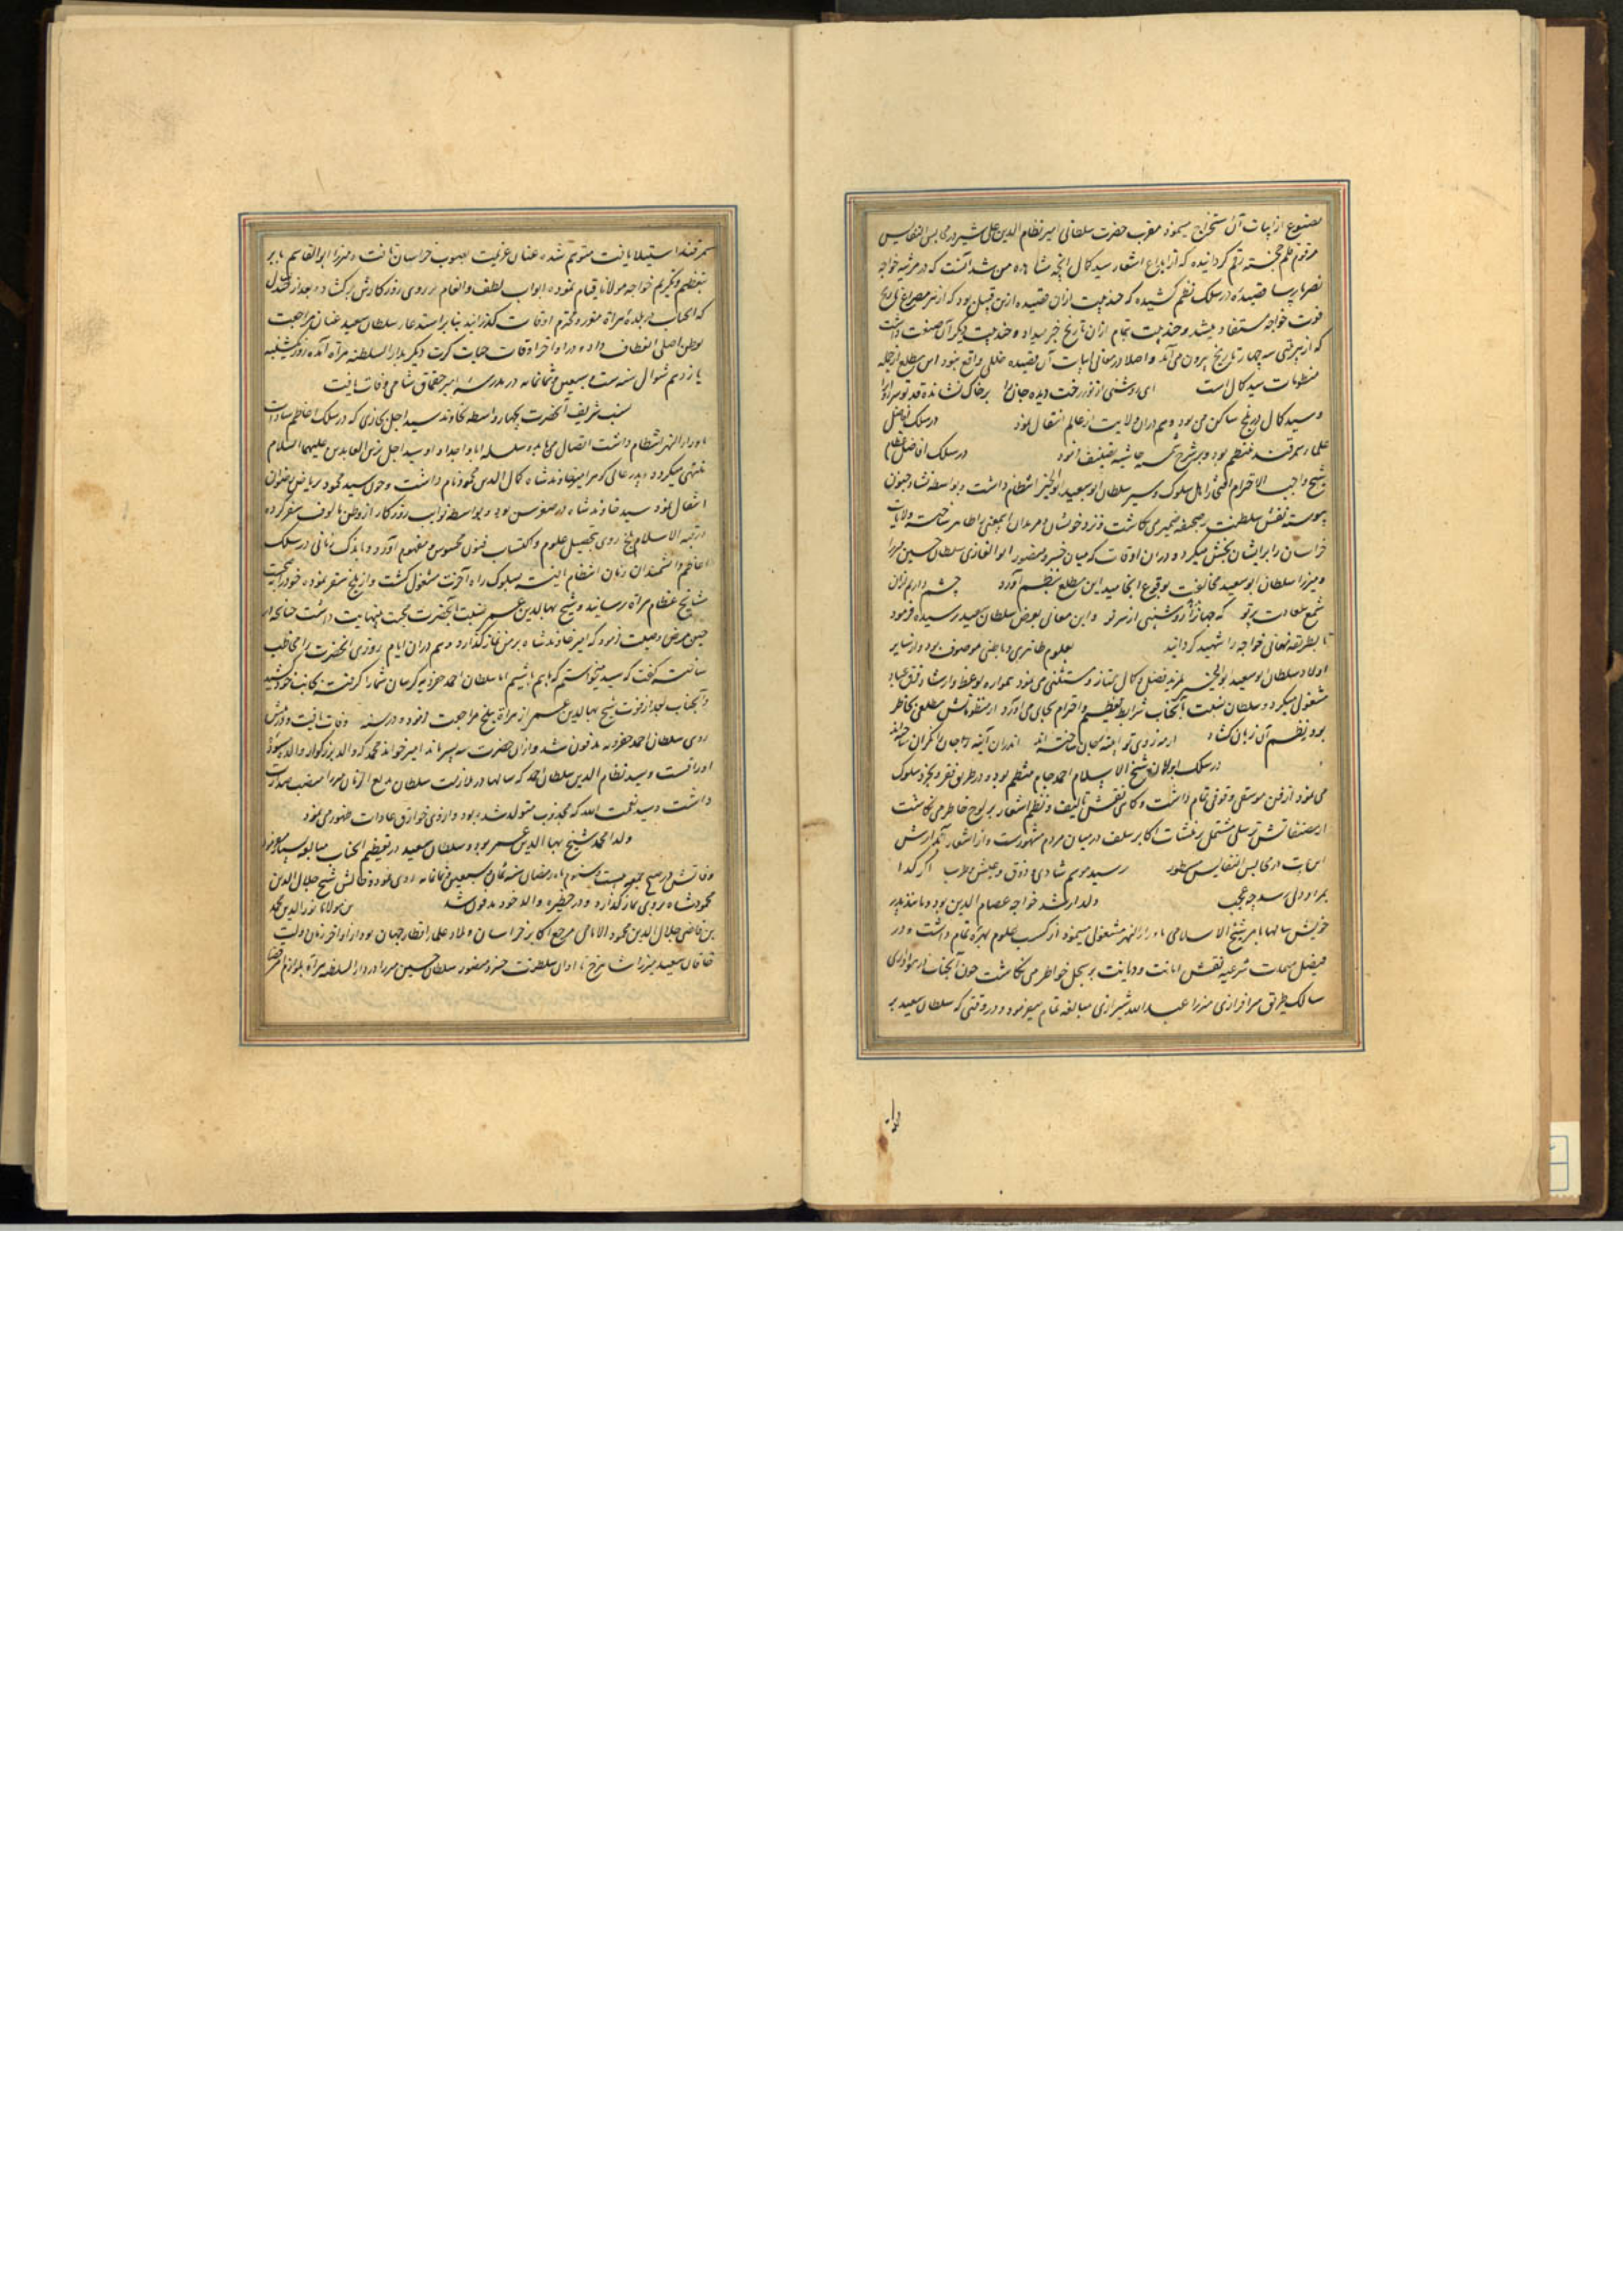 مصنوع از ابیات آن استخراج مینمود مقرب حضرت سلطانی امیر نظام الدین علی شیر در مجالس النفایس
مرقوم قلم خجسته رقم گردانیده که از بدایع اشعار سید کمال آنچه مشاهده من شد آنست که در مرثیه خواجه
نصر پارسا قصیده در سلک نظم کشیده که چند بیت از آن قصیده ازین قبیل بود که از هر مصراع تاریخ
فوت خواجه مستفاد میشد و چند بیت تمام از آن تاریخ خبر میداد و چند بیت دیگر آن صنعت داشت
که از بیتی سه چهار تاریخ بیرون می آمد و اصلا در معانی ابیات آن قصیده خللی واقع نبود این مطلع از جمله
منظومات سید کمال است ای روشنی از نور رخت دیده جان را بر خاک نشانده قد تو سرو
و سید کمال در بلخ ساکن می بود و هم در آن ولایت از عالم انتقال نمود در سلک افاضل
علماء سمرقند منتظم بود و بر شرح شمسیه حاشیه تصنیف نمود در سلک افاضل
شیخ واجب الاحترام اهل سلوک و سیر سلطان ابو سعید ابو الخیر انتظام داشت و بواسطه
پیوسته نقش سلطنت بر صحیفه ضمیر می نگاشت و نزد خویشان و مریدان این معنی را ظاهر ساخته ولایات
خراسان را بر ایشان بخش میکرد و در آن اوقات که میان خسرو منصور ابو الغازی سلطان حسین میرزا
و میرزا سلطان ابو سعید مخالفت بوقوع انجامید این مطلع بنظم آورد چشم دارم ازان
شمع سعادت پرتو که جهانرا روشنی از سر نو و این معانی بعرض سلطان سعید رسیده فرمود
تا بطریقه نهانی خواجه را شهید گردانید بعلوم ظاهری و باطنی موصوف بود و از سایر
اولاد سلطان ابو سعید ابو الخیر بمزید فضل و کمال ممتاز و مستثنی می نمود همواره بوعظ و ارشاد فرق عباد
مشغولی میکرد و سلطان نسبت بآنجناب شرایط تعظیم و احترام بجای می آورد از منظوماتش مطلعی بخاطر
بود بنظم آن زبان گشاد آینه جان ساخته اند اندران آینه
در سلک اولاد شیخ الاسلام احمد جام منتظم بود و در طریق فقر و تجرد سلوک
می نمود از فن موسیقی وقوفی تمام داشت و گاهی نقش تالیف و نظم اشعار بر لوح خاطر می نگاشت
از مصنفاتش ترسلی مشتمل بر منشآت اکابر سلف در میان مردم مشهورست و از اشعار آبدارش
این بیت در مجالس النفایس مسطور رسید موسم شادی و ذوق و عیش و طرب اگر گدا
بمراد دلی رسد چه عجب ولد ارشد خواجه عصام الدین بود و مانند پدر
خویش سالها بامر شیخ الاسلامی ماوراء النهر مشغولی مینمود از کسب علوم بهره تمام داشت و در
فیصل مهمات شرعیه نقش امانت و دیانت بر سجل خواطر می نگاشت چون آنجناب در هواداری
سالک طریق سرافرازی میرزا عبد الله شیرازی مبالغه تمام میفرمود و در وقتی که سلطان سعید بر
سمرقند استیلا یافت متوهم شده عنان عزیمت بصوب خراسان تافت و میرزا ابو القاسم بابر
بتعظیم و تکریم خواجه مولانا قیام نموده ابواب لطف و انعام بر روی روزگارش برگشاد و بعد از
که آنجناب در بلده هراة موقر و محترم اوقات گذرانید بنا بر استدعاء سلطان سعید عنان مراجعت
بوطن اصلی انعطاف داده در اواخر اوقات حیات کرت دیگر بدار السلطنه هراة آمده روز یکشنبه
یازدهم شوال سنه ست و سبعین و ثمانمائه در مدرسه امیر چقماق شامی وفات یافت
نسب شریف آنحضرت بچهار واسطه بخاوند سید اجل بخاری که در سلک اعاظم سادات
ماوراء النهر انتظام داشت اتصال می یابد و سلسله آبا و اجداد او سید اجل بزین العابدین علیهما السلام
منتهی میگردد و پدر عالی گوهر امیر خاوند شاه کمال الدین محمود نام داشت و چون سید محمود بریاض رضوان
انتقال نمود سید خاوند شاه در صغر سن بود و بواسطه نوایب روزگار از وطن مالوف سفر کرده
در قبه الاسلام بلخ روی بتحصیل علوم و اکتساب فنون محسوس و مفهوم آورد و باندک زمانی در سلک
اعاظم دانشمندان زمان انتظام یافت بسلوک راه آخرت مشغول گشت و از بلخ سفر نموده خود را بصحبت
مشایخ عظام هراة رسانید و شیخ بهاء الدین عمر نسبت بآنحضرت محبت بینهایت داشت چنانچه در
حین مرض وصیت فرمود که امیر خاوند شاه بر من نماز گذارد و هم در آن ایام روزی آنحضرت را مخاطب
ساخته گفت که سید میخواستم که با هم باشیم اما سلطان احمد خضرویه گریبان شما را گرفته بجانب خود میکشد
و آنجناب بعد از فوت شیخ بهاء الدین عمر از هراة ببلخ مراجعت نموده در سنه وفات یافت و در پیش
روی سلطان احمد خضرویه مدفون شد و از آن حضرت سه پسر ماند امیر خواند محمد که والد بزرگوار والده مسود
اوراقست و سید نظام الدین سلطان احمد که سالها در ملازمت سلطان بدیع الزمان میرزا منصب صدارت
داشت و سید نعمت الله که مجذوب متولد شده بود و از وی خوارق عادات ظهور می نمود
ولد امجد شیخ بهاء الدین عمر بود و سلطان سعید در تعظیم آنجناب مبالغه بسیار مینمود
وفاتش در صبح جمعه بیست و سیوم ماه رمضان سنه ثمان و سبعین و ثمانمائه روی نمود و خالش شیخ جلال الدین
محمود شاه بروی نماز گذارد و در حظیره والد خود مدفون شد بن مولانا نور الدین محمد
بن قاضی جلال الدین محمود الامامی مرجع اکابر خراسان و ملاذ علماء اقطار جهان بود از اواخر زمان دولت
خاقان سعید میرزا شاهرخ تا اوان سلطنت خسرو منصور سلطان حسین میرزا در دار السلطنه هراة بلوازم امر قضا